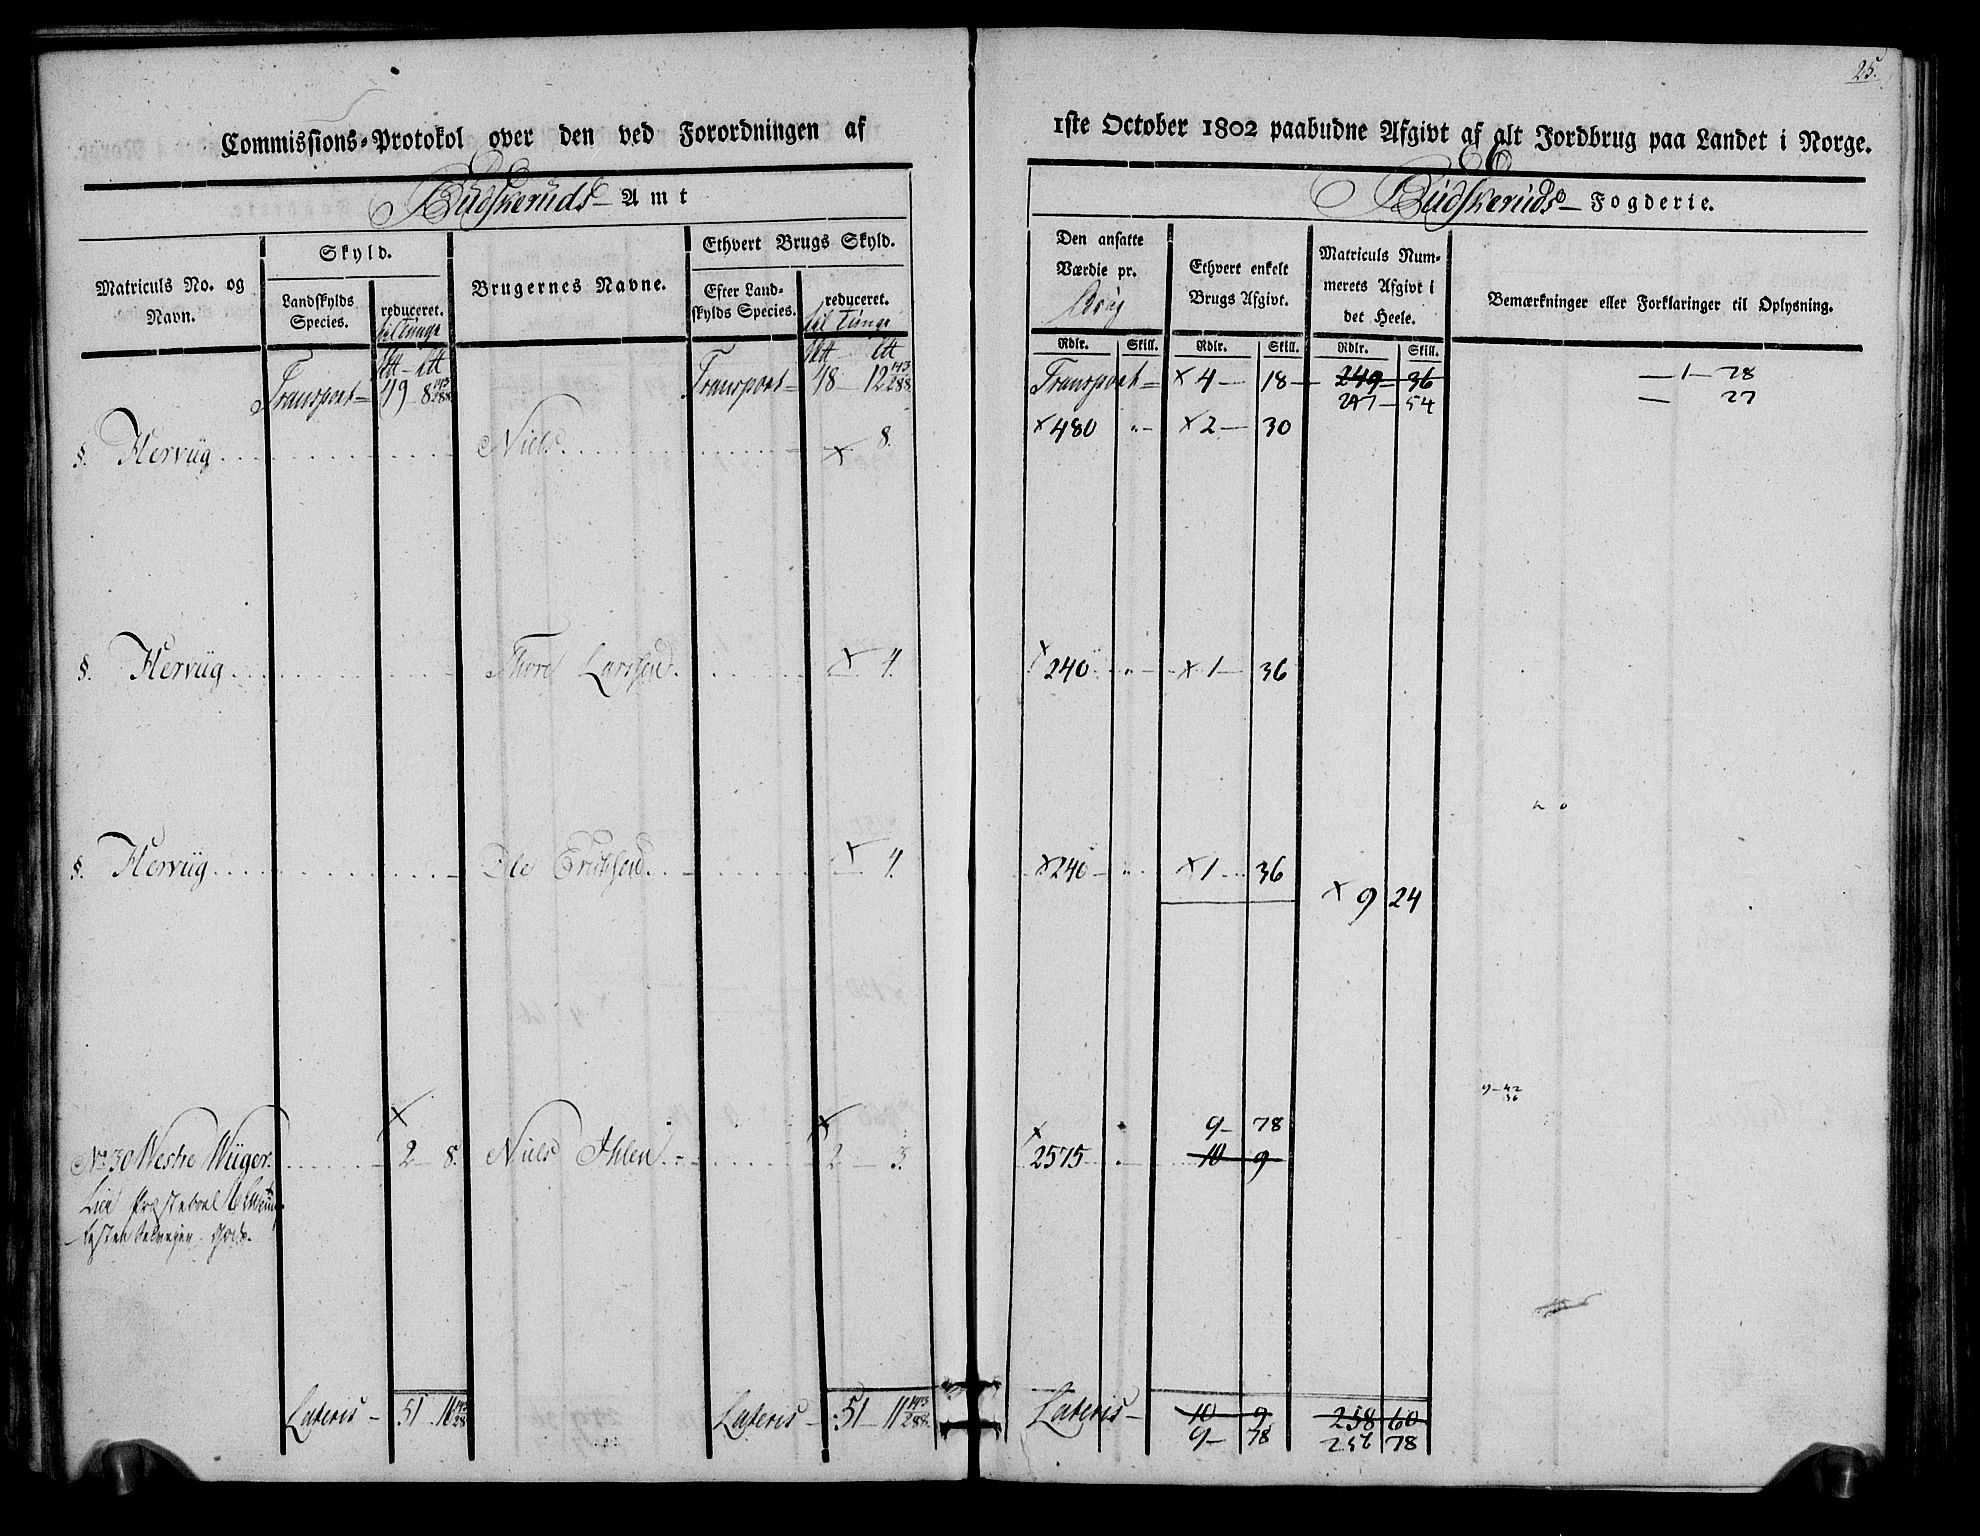 25.
Commissions-Protokol over den ved Forordningen af
1ste October 1802 paabudne Afgivt af alt Jordbrug paa Landet i Norge.
Budskeruds Amt
Budskeruds Fogderie.
Matriculs No. og Navn.
Skyld.
Landskylds Species.
reduceret. til Tunge
Brugernes Navne.
Ethvert Brugs Skyld.
Efter Land-skylds Species.
reduceret. til Tunge
Den ansatte Værdie pr. Brug
Ethvert enkelt Brugs Afgivt.
Matriculs Num-merets Afgivt i det Heele.
Bemærkninger eller Forklaringer til Oplysning.
Rdlr. Skill. Rdlr. Skill. Rdlr. Skill.
Transport 49 8 143/288 Transport 48 12 143/288 Transport × 4 18 249 36 1 78
247 54 27
§. Hervüg Niels × 8. × 480 " × 2 30
§. Hervüg Thore Larssen × 4. × 240 " × 1 36
§. Hervüg Ole Erichsen × 4. × 240 " × 1 36
× 9 24
9 42
36
9 78
No 30 Westre Wüger. × 2 8. Niels Ihlen × 2 3. × 2575 10 9
Lier Præsteboel
Gods.
Lateris 51 11 143/288 Lateris 51 11 143/288 Lateris 10 9 258 60
9 78 256 78